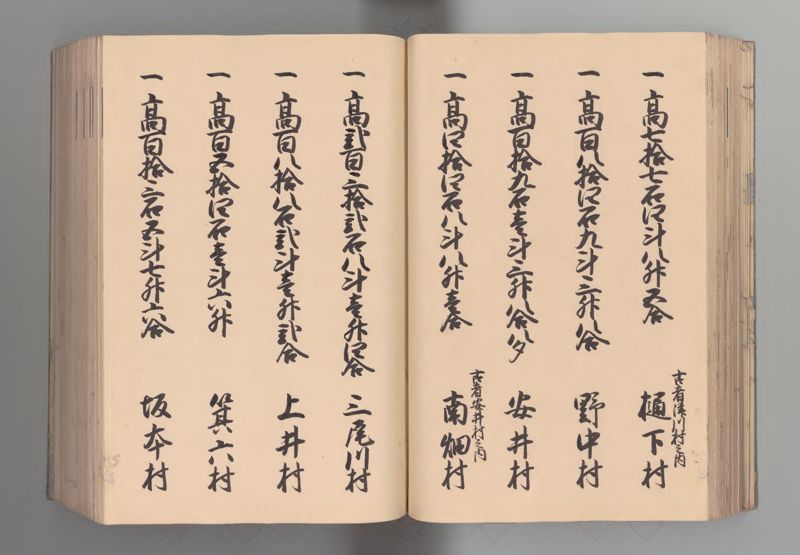 一 高七拾七石四斗八升五合 古者湊川村之内 樋下村
一 高百八拾四石九斗三升八合 野中村
一 高百拾九石壱斗三升八合八夕 安井村
一 高四拾四石八斗八升壱合 古者安井村之内 南畑村
一 高弐百三拾弐石八斗壱升四合 三尾川村
一 高百八拾八石弐斗壱升弐合 上井村
一 高百五拾四石壱斗六升 箕六村
一 高百拾三石五斗七升六合 坂本村